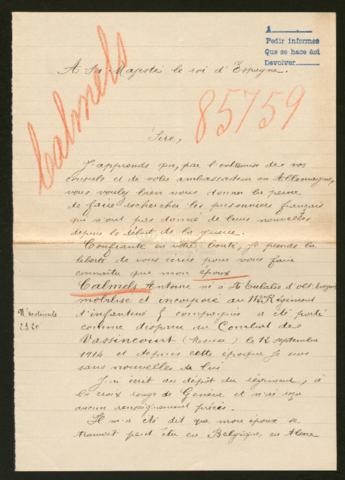 A
Pedir informes
Que se hace así
Devolver
A Sa Majesté le roi d'Espagne.
Calmels
85759
Sire,
J'apprends que, par l'entremise de vos
consuls et de votre ambassadeur en Allemagne,
vous voulez bien nous donner la peine
de faire rechercher les prisonniers français
qui n'ont pas donné de leurs nouvelles
depuis le début de la guerre.
Confiante en votre bonté, je prends la
liberté de vous écrire pour vous faire
connaître que mon époux
Calmels Antoine né à Ste Eulalie d'olt
mobilisé et incorporé au Régiment
d'infanterie compagnie a été porté
comme disparu au Combat de
Vassincourt (Meuse) le septembre
1914 et depuis cette époque je suis
sans nouvelles de lui.
J'ai écrit au dépôt du régiment, à
la croix rouge de Genève et n'ai reçu
aucun renseignement précis.
Il m'a été dit que mon époux se
trouvait peut être en Belgique, en Alsace